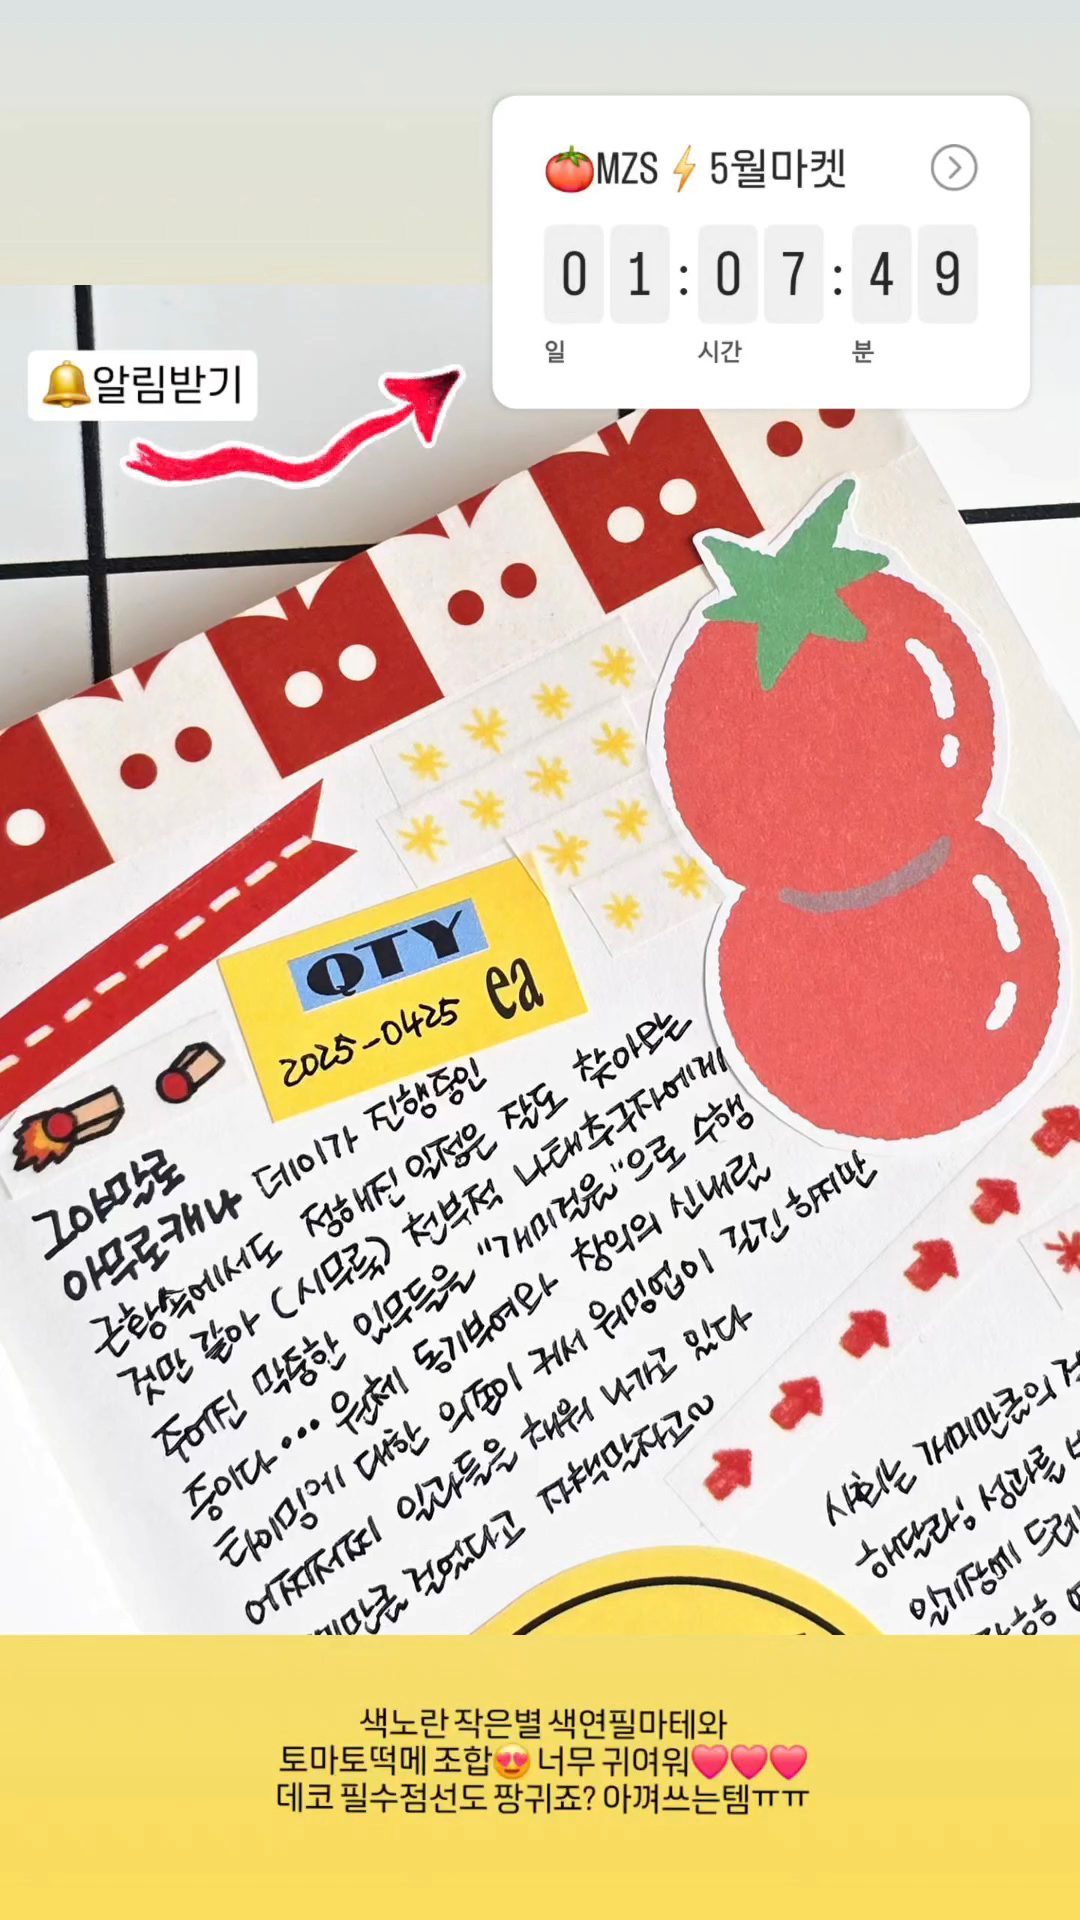 🍅MZS⚡5월마켓
01:07:49
일 시간 분
🔔알림받기
QTY
ea
2025-0425
그야말로
아무로캐나 데이가 진행중인
근황속에서도 정해진 일정은 잘도 찾아오는
것만 같아 (시무룩) 천부적 나태추구자에게
주어진 막중한 임무들을 "개미걸음"으로 수행
중이다... 원체 동기부여와 창의의 신내림
타이밍에 대한 의존이 커서 워밍업이 길긴 하지만
어찌저찌 일과들을 채워 나가고 있다
개미만큼 걸었다고 자책말자고~
사회는 개미만큼의
해달라; 성과를
일기장에
색노란 작은별 색연필마테와
토마토떡메 조합😍 너무 귀여워💗💗💗
데코 필수점선도 팡귀죠? 아껴쓰는템ㅠㅠ